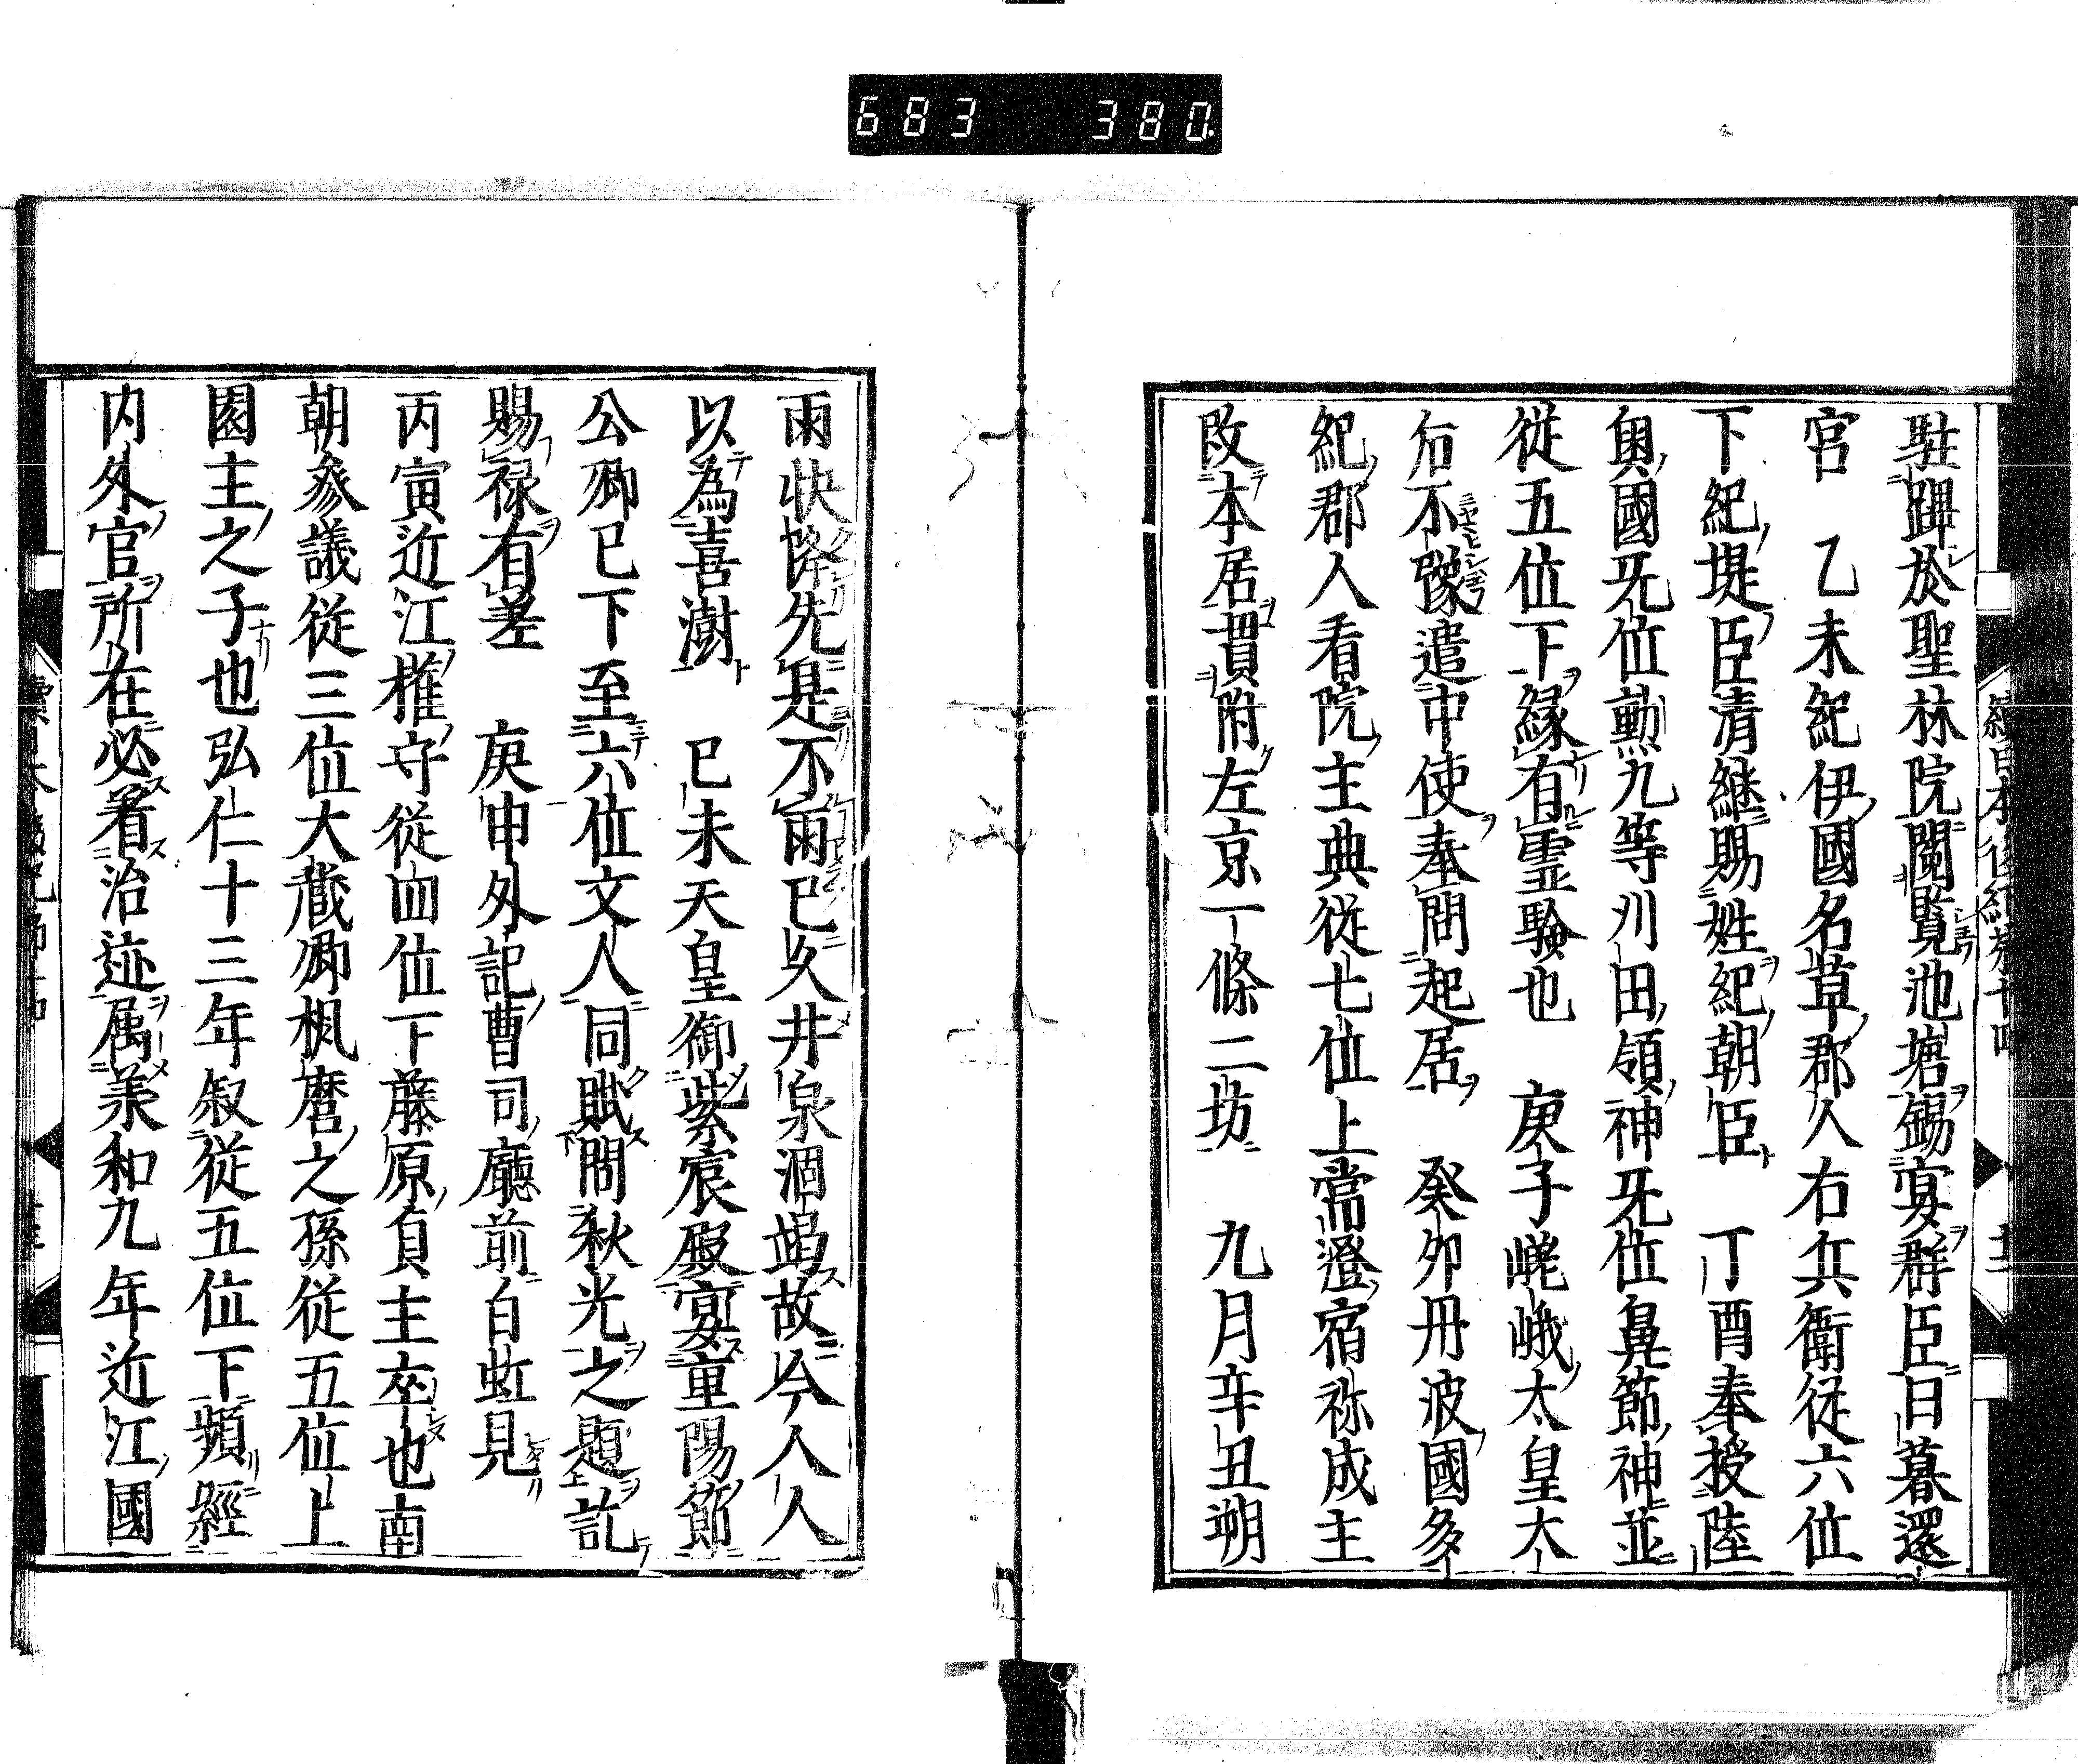 683 380
駐蹕於聖林院閲覧池塘錫宴群臣日暮還
官 乙未紀伊國名草郡人右兵衛従六位
下紀堤臣清継賜姓紀朝臣 丁酉奉授陸
奥國无位勲九等刈田嶺神无位鼻節神並
従五位下縁有霊験也 庚子嵯峨太皇太
后不豫遣中使奉問起居 癸卯丹波國多
紀郡人看院主典従七位上當澄宿祢成主
改本居貫附左京一條二坊 九月辛丑朔
雨快降先是不雨已久井泉涸竭故令人人
以為喜澍 已未天皇御紫宸殿宴重陽節
公卿已下至六位文人同賦閑秋光之題訖
賜禄有差 庚申外記曹司廳前白虹見
丙寅近江権守従四位下藤原貞主卒也南
朝参議従三位大蔵卿楓麿之孫従五位上
園主之子也弘仁十三年叙従五位下頻經
内外官所在必著治迹属美和九年近江國